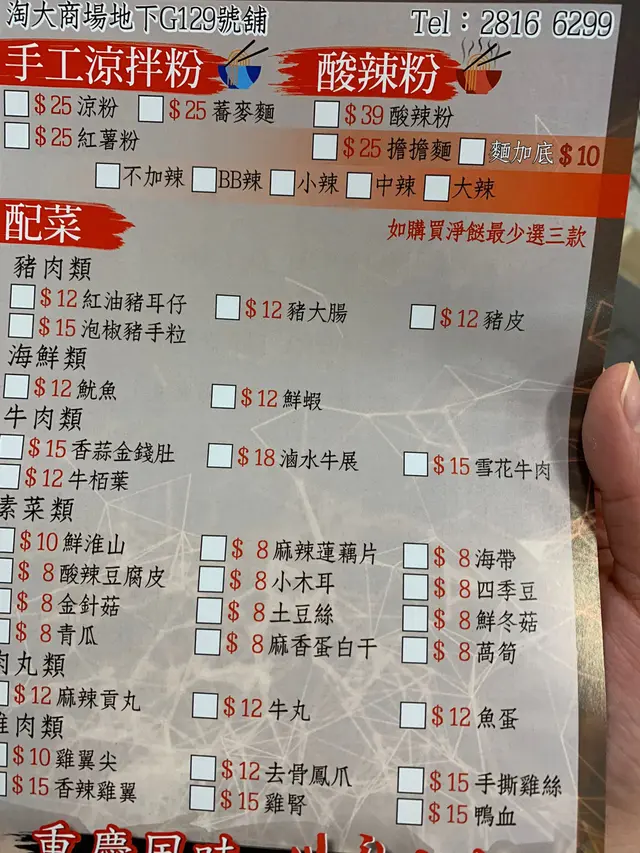 淘大商場地下G129號舖 Tel：2816 6299
手工涼拌粉 酸辣粉
$25 涼粉 $25 蕎麥麵 $39 酸辣粉
$25 紅薯粉 $25 擔擔麵 麵加底 $10
不加辣 BB辣 小辣 中辣 大辣
配菜 如購買淨餸最少選三款
豬肉類
$12 紅油豬耳仔 $12 豬大腸 $12 豬皮
$15 泡椒豬手粒
海鮮類
$12 魷魚 $12 鮮蝦
牛肉類
$15 香蒜金錢肚 $18 滷水牛展 $15 雪花牛肉
$12 牛栢葉
素菜類
$10 鮮淮山 $ 8 麻辣蓮藕片 $ 8 海帶
$ 8 酸辣豆腐皮 $ 8 小木耳 $ 8 四季豆
$ 8 金針菇 $ 8 土豆絲 $ 8 鮮冬菇
$ 8 青瓜 $ 8 麻香蛋白干 $ 8 萵筍
肉丸類
$12 麻辣貢丸 $12 牛丸 $12 魚蛋
雞肉類
$10 雞翼尖 $12 去骨鳳爪 $15 手撕雞絲
$15 香辣雞翼 $15 雞腎 $15 鴨血
重慶風味